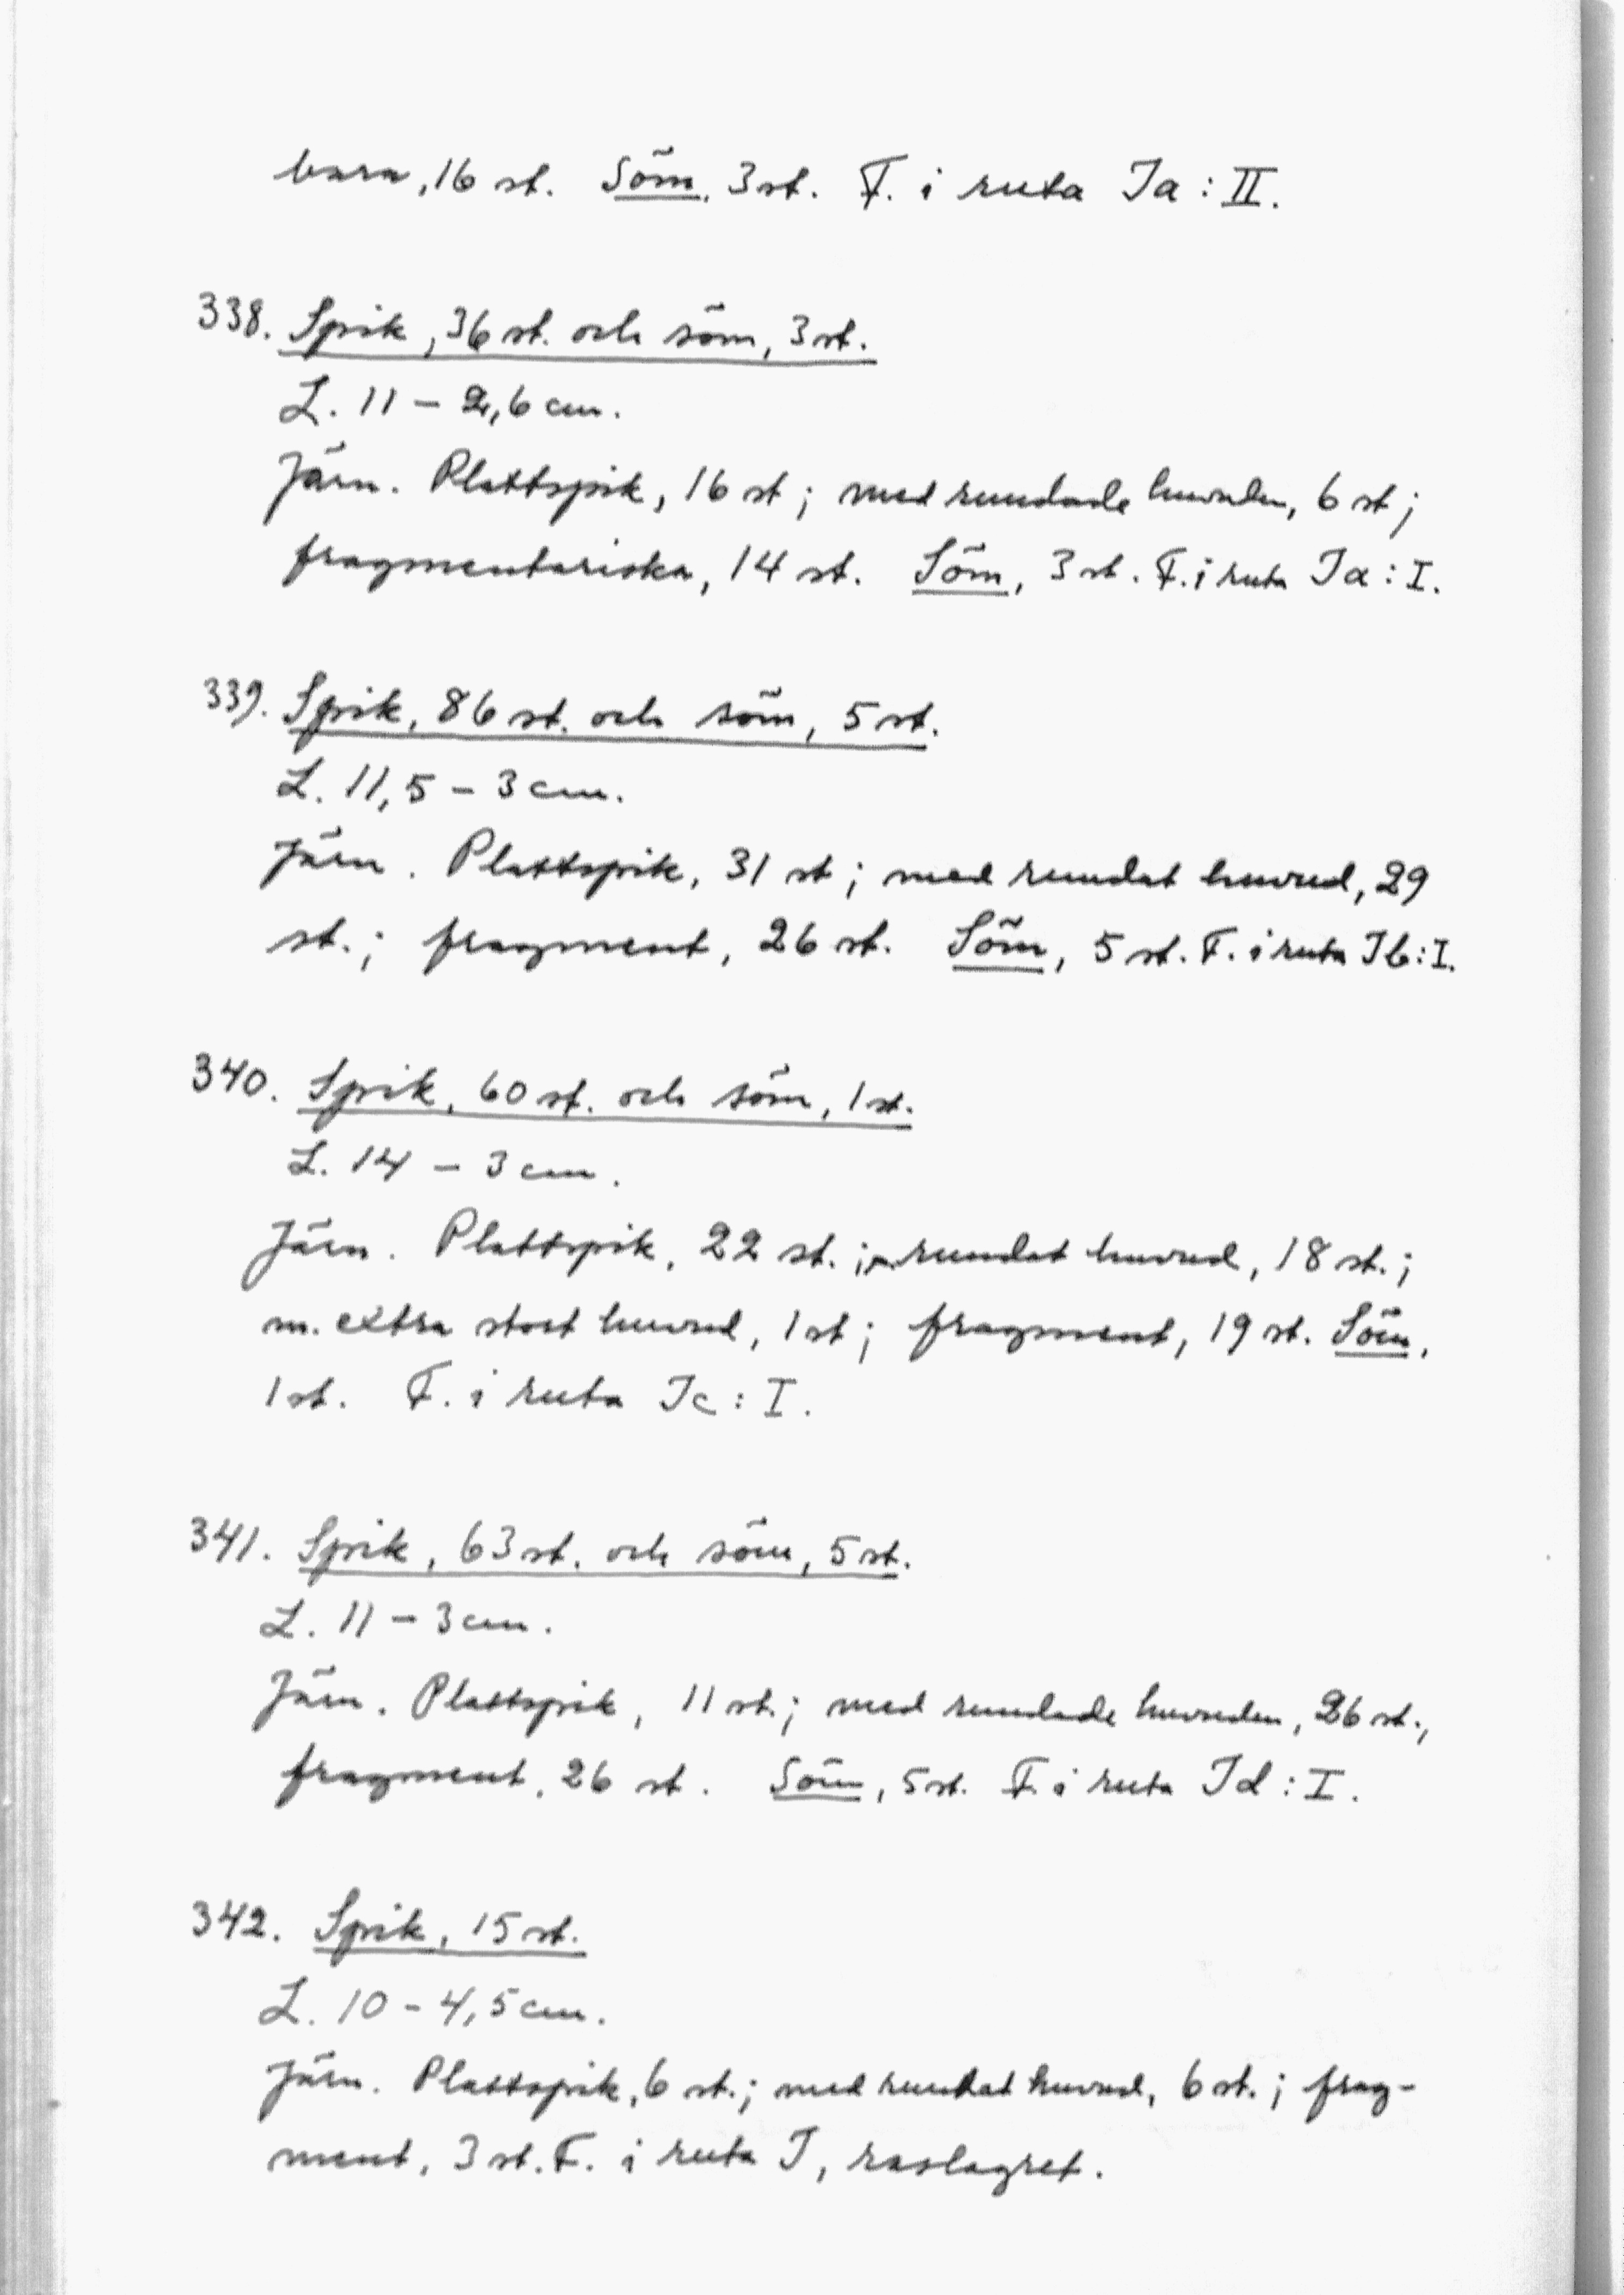 bara, 16 st. Söm, 3 st. F. i ruta Ia : II.
338. Spik, 36 st. och söm, 3 st.
L. 11 – 2,6 cm.
Järn. Plattspik, 16 st ; med rundade huvuden, 6 st ;
fragmentariska, 14 st. Söm, 3 st. F. i ruta Ia : I.
339. Spik, 86 st. och söm, 5 st.
L. 11,5 – 3 cm.
Järn. Plattspik, 31 st ; med rundat huvud, 29
st. ; fragment, 26 st. Söm, 5 st. F. i ruta Ib : I.
340. Spik, 60 st. och söm, 1 st.
L. 14 – 3 cm.
Järn. Plattspik, 22 st. ; m. rundat huvud, 18 st. ;
m. extra stort huvud, 1 st ; fragment, 19 st. Söm,
1 st. F. i ruta Ic : I.
341. Spik, 63 st. och söm, 5 st.
L. 11 – 3 cm.
Järn. Plattspik, 11 st. ; med rundade huvuden, 26 st.,
fragment, 26 st. Söm, 5 st. F. i ruta Id : I.
342. Spik, 15 st.
L. 10 – 4,5 cm.
Järn. Plattspik, 6 st. ; med rundat huvud, 6 st. ; frag-
ment, 3 st. F. i ruta I, raslagret.